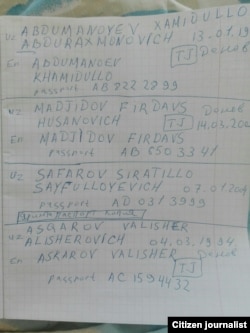 UZ ABDUMANOVEV XAMIDULLO
ABDURAXMONOVICH 13-01.19
TJ Данев
En ABDUMANOEV
KHAMIDULLO
passport AB 822 2899
UZ MADJIDOV FIRDAVS
HUSANOVICH TJ 14.03.200
En MADJIDOV FIRDAVS
passport AB 650 3341
UZ SAFAROV SIRATILLO
SAYFULLOYEVICH 07.01.200
passport AD 031 3999
ASQAROV VALISHER
UZ ALISHEROVICH 04.03.1994
En ASKAROV VALISHER
TJ
passport AC 1594432
Citizen journalist